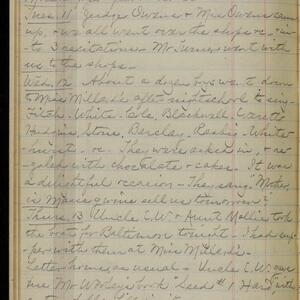 Tues. 11 Judge Owens & Mrs Owens came
up, & we all went over the shops & in-
to 3 recitations. Mr Turner went with
us to the shops.
Wed. 12 About a dozen boys went down
to Miss Millard's after night school to sing
Fitch - White - Cole, Blackwell, Garrett
Hudgins, Stone, Barclay, White-
hurst - &c. They were asked in, & re-
galed with chocolate & cakes. It was
a delightful occasion - They sang "Mother,
is Massa gwine sell us tomorrow?"
Thurs. 13 Uncle E.W. & Aunt Mollie took
the boat for Baltimore tonight - I had sup-
per with them at Miss Millard's.
Letter home, as usual - Uncle E.W. gave
me Mr book "Seed # 1 Hard" with